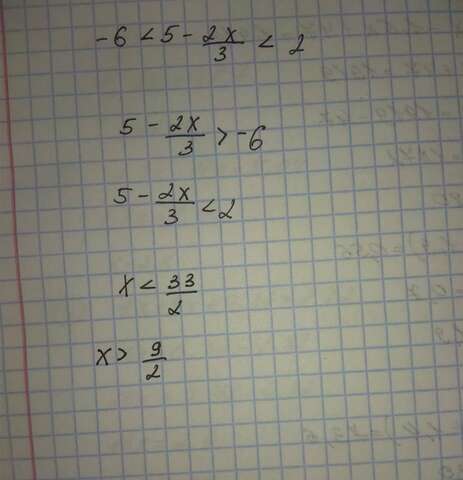 -6 < 5 - 2x/3 < 2
5 - 2x/3 > -6
5 - 2x/3 < 2
x < 33/2
x > 9/2